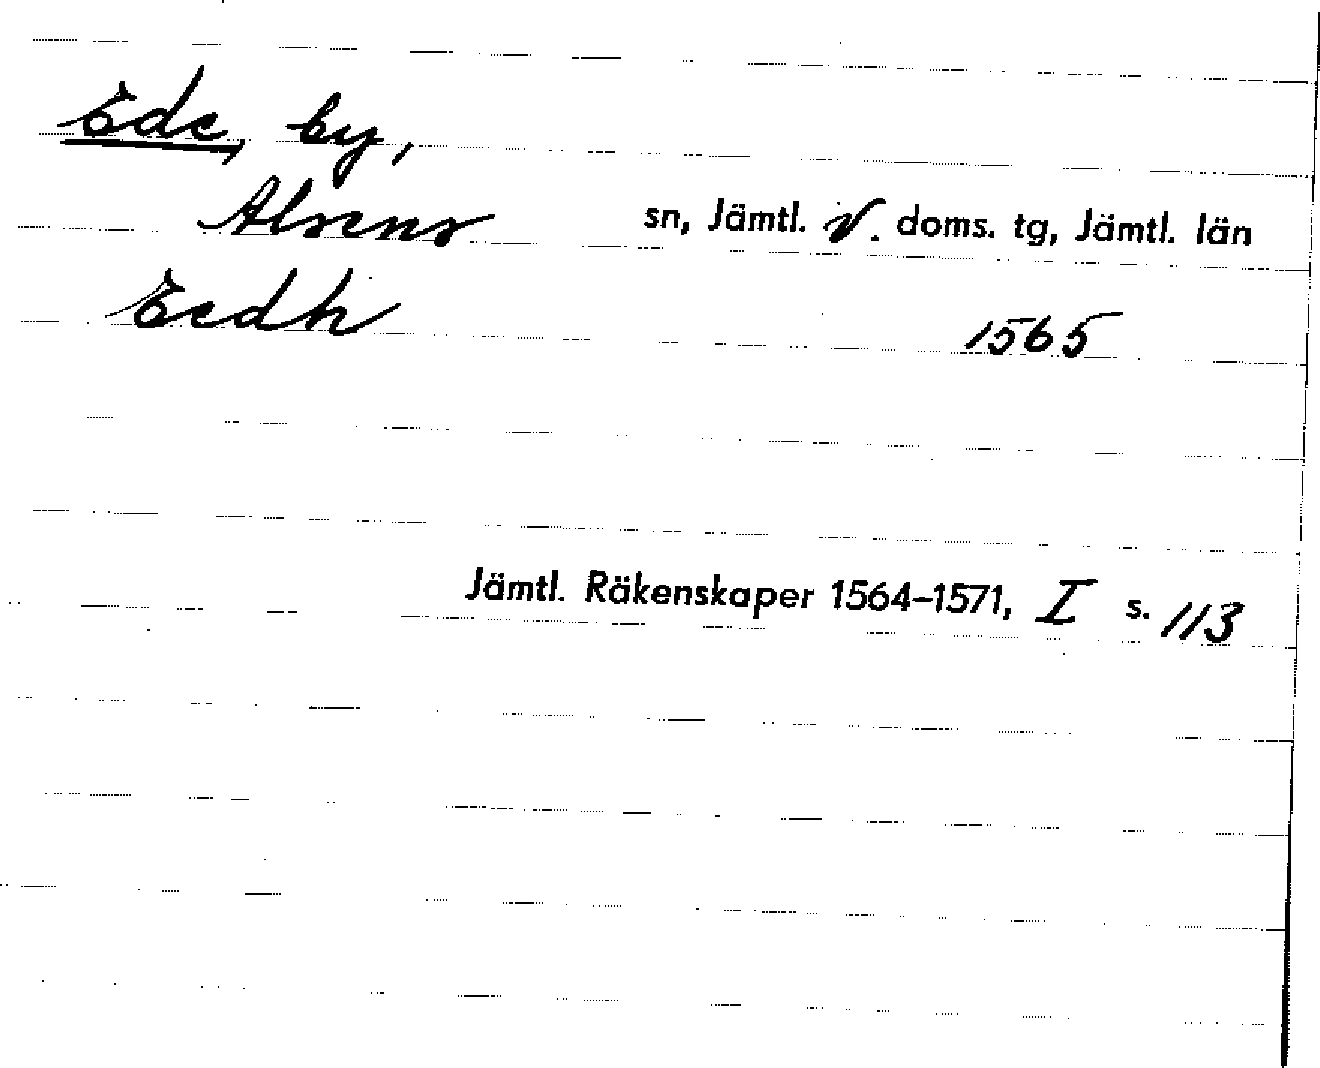 Ede, by,
Alsens sn, Jämtl. v. doms. tg, Jämtl. län
Eedh 1565
Jämtl. Räkenskaper 1564-1571, I s. 113